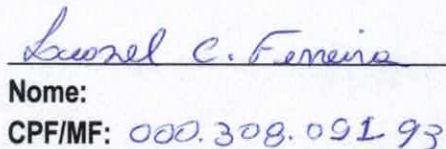 C. Ferreira
Nome:
CPF/MF: 000.308.091 93